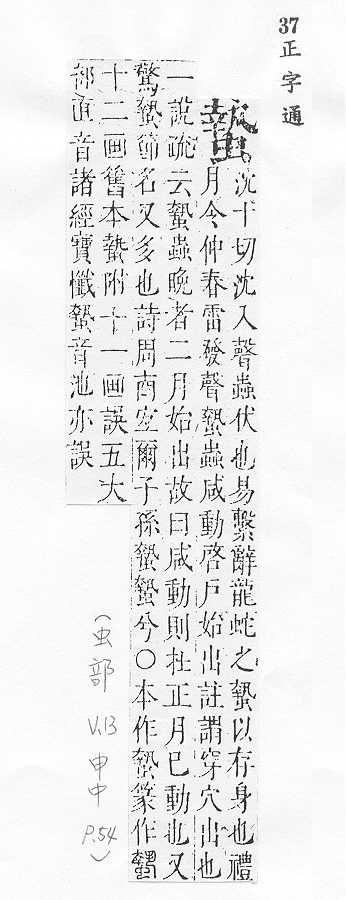 37
正字通
蟄沈十切沈入聲蟲伏也易繫辭龍蛇之蟄以存身也禮
月令仲春雷發聲蟄蟲咸動啓戶始出註謂穿穴出也
一說疏云蟄蟲晚者二月始出故曰咸動則在正月已動也又
驚蟄節名又多也詩周南宜爾子孫蟄蟄兮○本作蟄篆作
十二画舊本蟄附十一画誤五大
部直音諸經寶懺蟄音池亦誤
(虫部 V.13 申中 P.54)